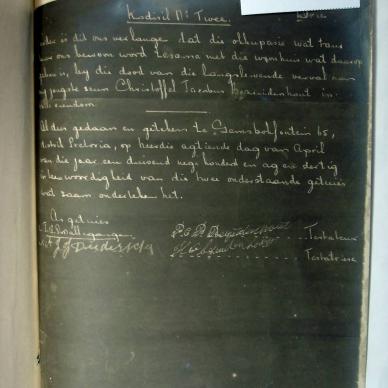 Kodisil No. Twee.
is dit ons verlange dat die okkupasie wat tans
ons bewoon word tesame met die woonhuis wat daarop
is, by die dood van die langslewende verval aan
jongste seun Christoffel Jacobus Bezuidenhout in
volle eiendom.
Aldus gedaan en geteken te 65,
distrik Pretoria, op hierdie agtiende dag van April
van die jaar een duisend nege honderd en ag en dertig
in teenwoordigheid van die twee onderstaande getuies
wat saam onderteken het.
As getuies
Testateur
Testatrise